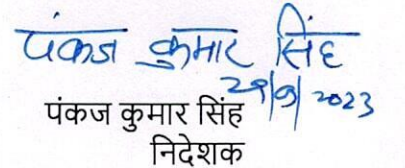 पंकज कुमार सिंह
29/9/2023
पंकज कुमार सिंह
निदेशक